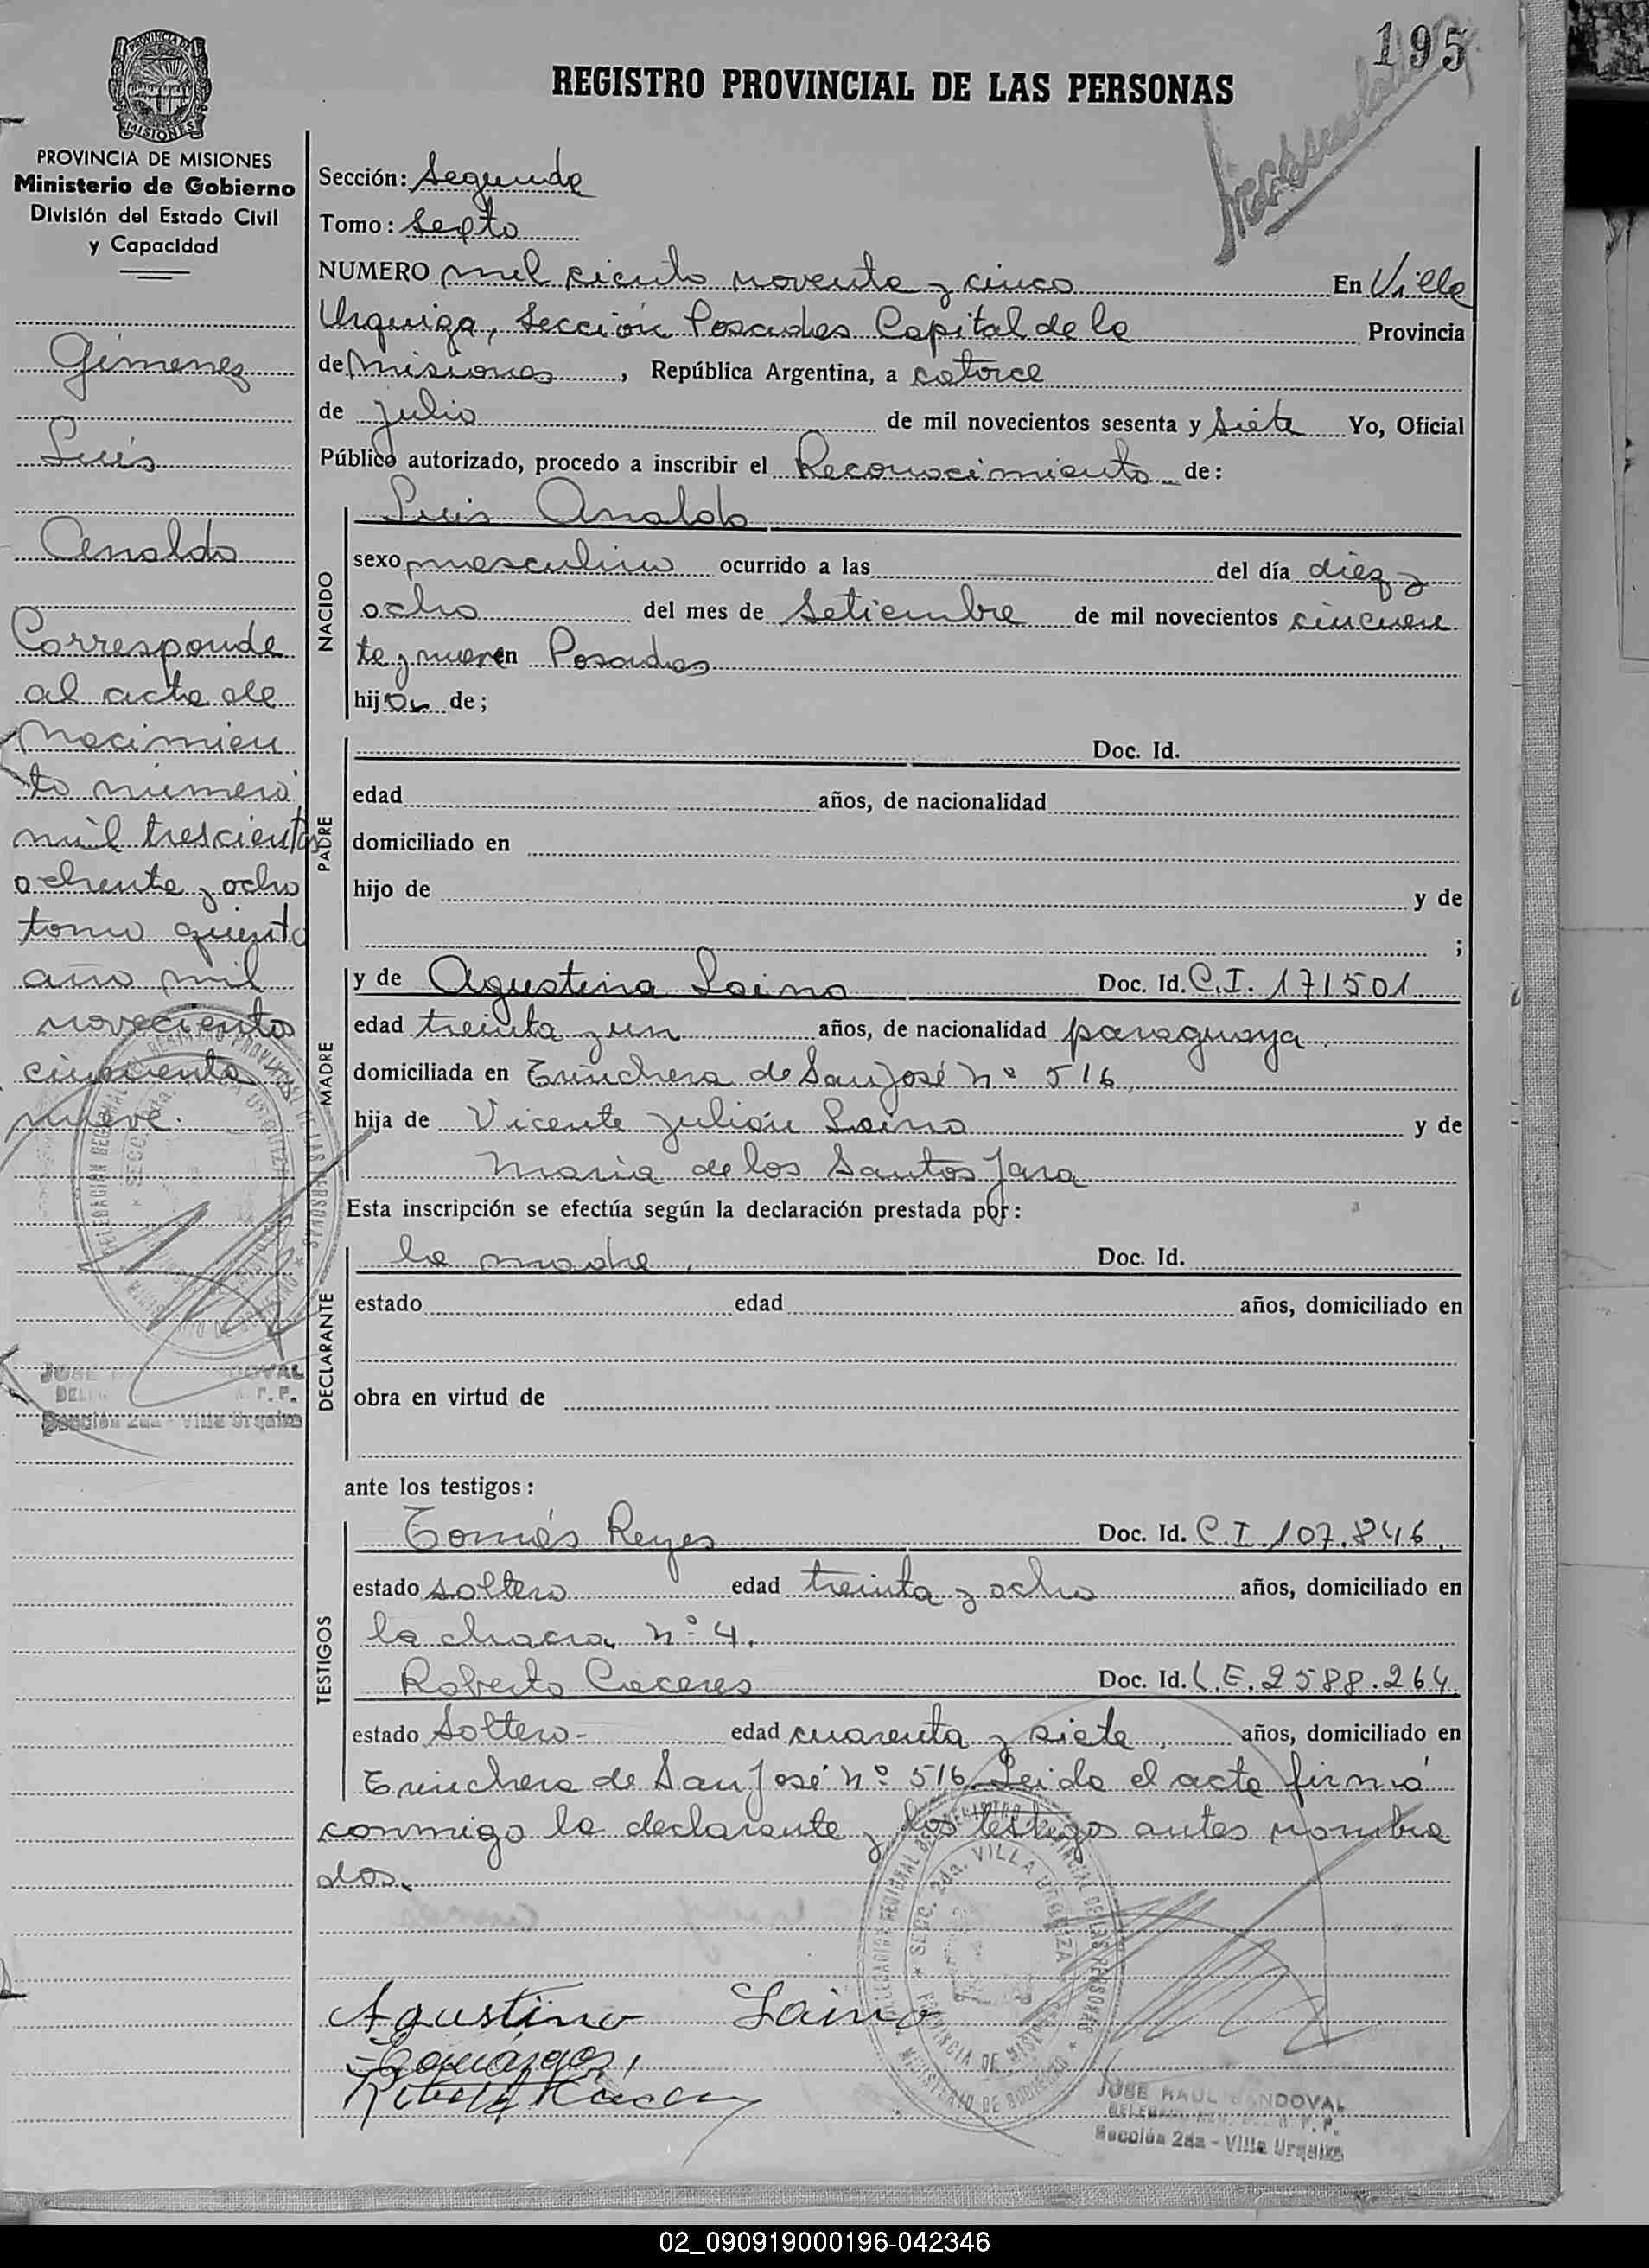 195
REGISTRO PROVINCIAL DE LAS PERSONAS
PROVINCIA DE MISIONES
Ministerio de Gobierno
División del Estado Civil
y Capacidad
Gimenez
Luis
Analdo
Corresponde
al acta de
Nacimien
to número
mil trescientos
ochenta y ocho
tomo quinto
año mil
novecientos
cincuenta
nueve.
Sección: Segunda
Tomo: Sexto
NUMERO mil ciento noventa y cinco En Villa
Urquiza, Sección Posadas Capital de la Provincia
de Misiones, República Argentina, a catorce
de julio de mil novecientos sesenta y siete Yo, Oficial
Público autorizado, procedo a inscribir el Reconocimiento de:
NACIDO
Luis Analdo
sexo masculino ocurrido a las del día diez y
ocho del mes de Setiembre de mil novecientos cincuen
ta y nueve en Posadas
hijo de;
PADRE
Doc. Id.
edad años, de nacionalidad
domiciliado en
hijo de y de
;
MADRE
y de Agustina Laino Doc. Id. C.I. 171501
edad treinta y un años, de nacionalidad paraguaya.
domiciliada en Trinchera de San José Nº 516
hija de Vicente Julián Laino y de
Maria de los Santos Jara
Esta inscripción se efectúa según la declaración prestada por:
DECLARANTE
la madre. Doc. Id.
estado edad años, domiciliado en
obra en virtud de
ante los testigos:
TESTIGOS
Tomás Reyes Doc. Id. C.I 107.846.
estado soltero edad treinta y ocho años, domiciliado en
la chacra Nº 4.
Roberto Caceres Doc. Id. L.E. 2588.264
estado Soltero- edad cuarenta y siete, años, domiciliado en
Trinchera de San José Nº 516. Leida el acta firmó
conmigo la declarante y los testigos antes nombra
dos.
Agustina Laino
JOSE RAUL SANDOVAL
Sección 2da - Villa Urquiza
02_090919000196-042346